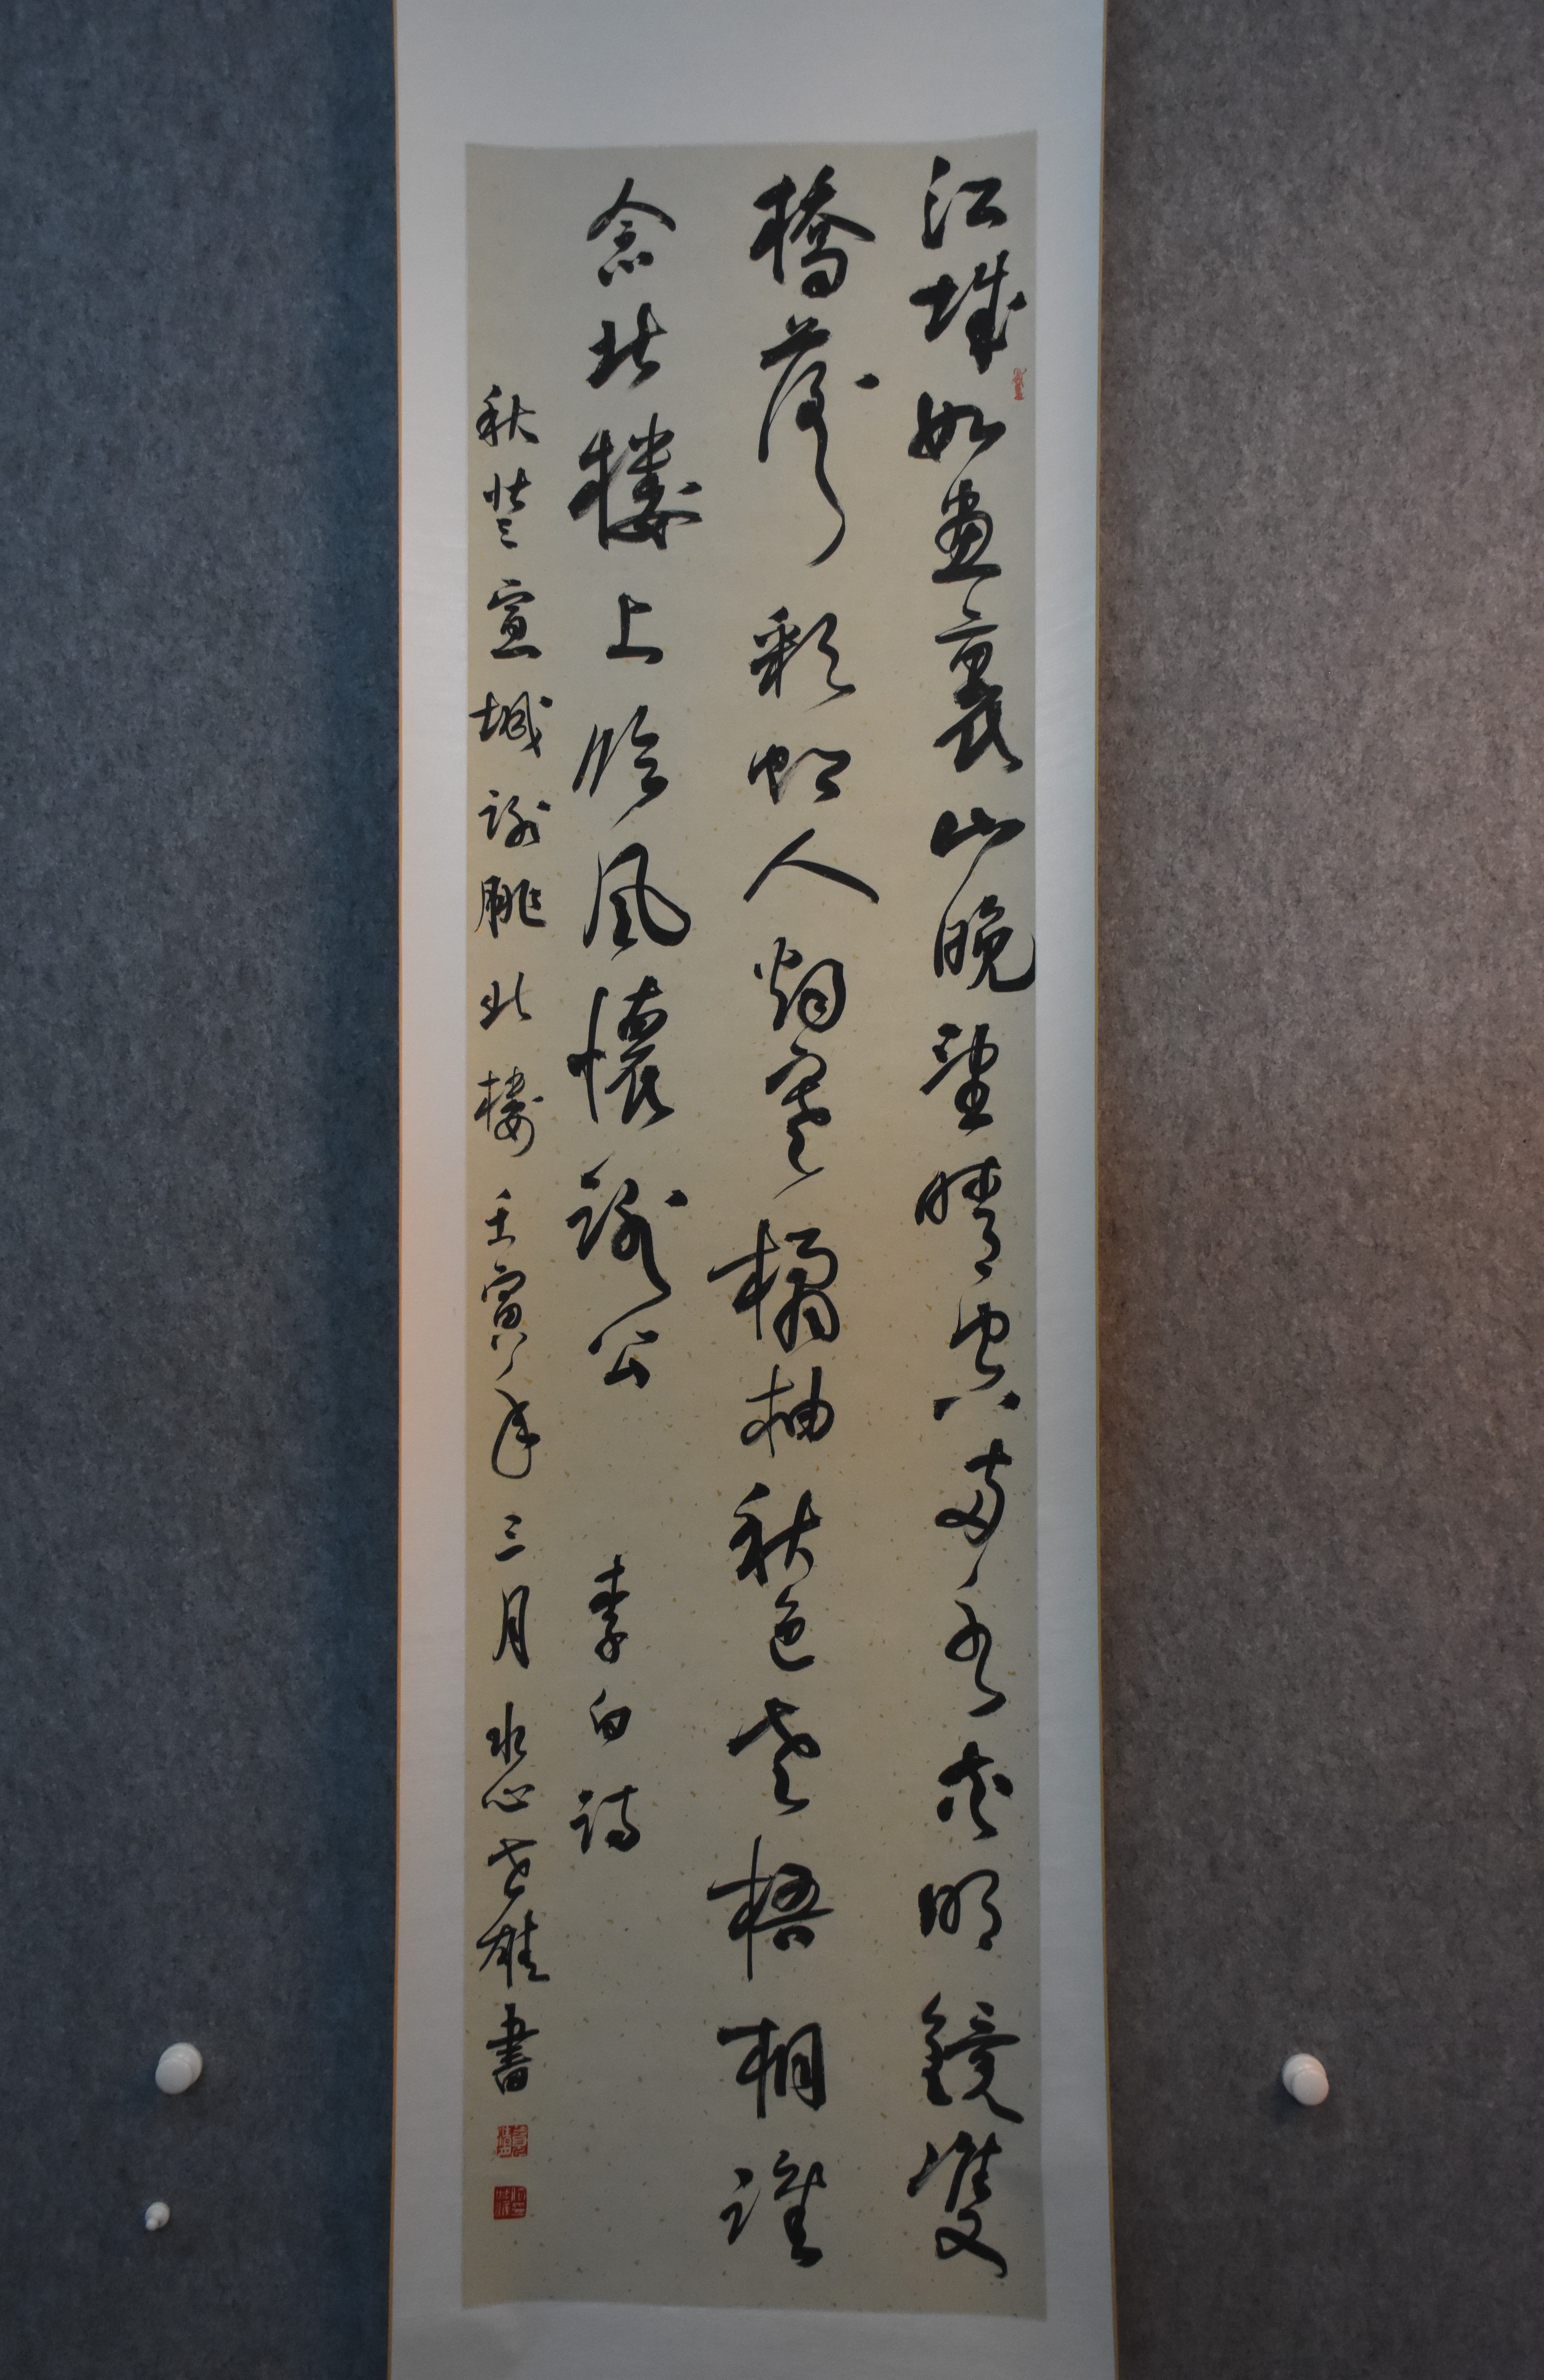 江城如畫裏山晚望晴空兩水夾明鏡雙
橋落彩虹人烟寒橘柚秋色老梧桐誰
念北樓上臨風懷謝公 李白詩
秋登宣城謝朓北樓 壬寅年三月 水心老雄書